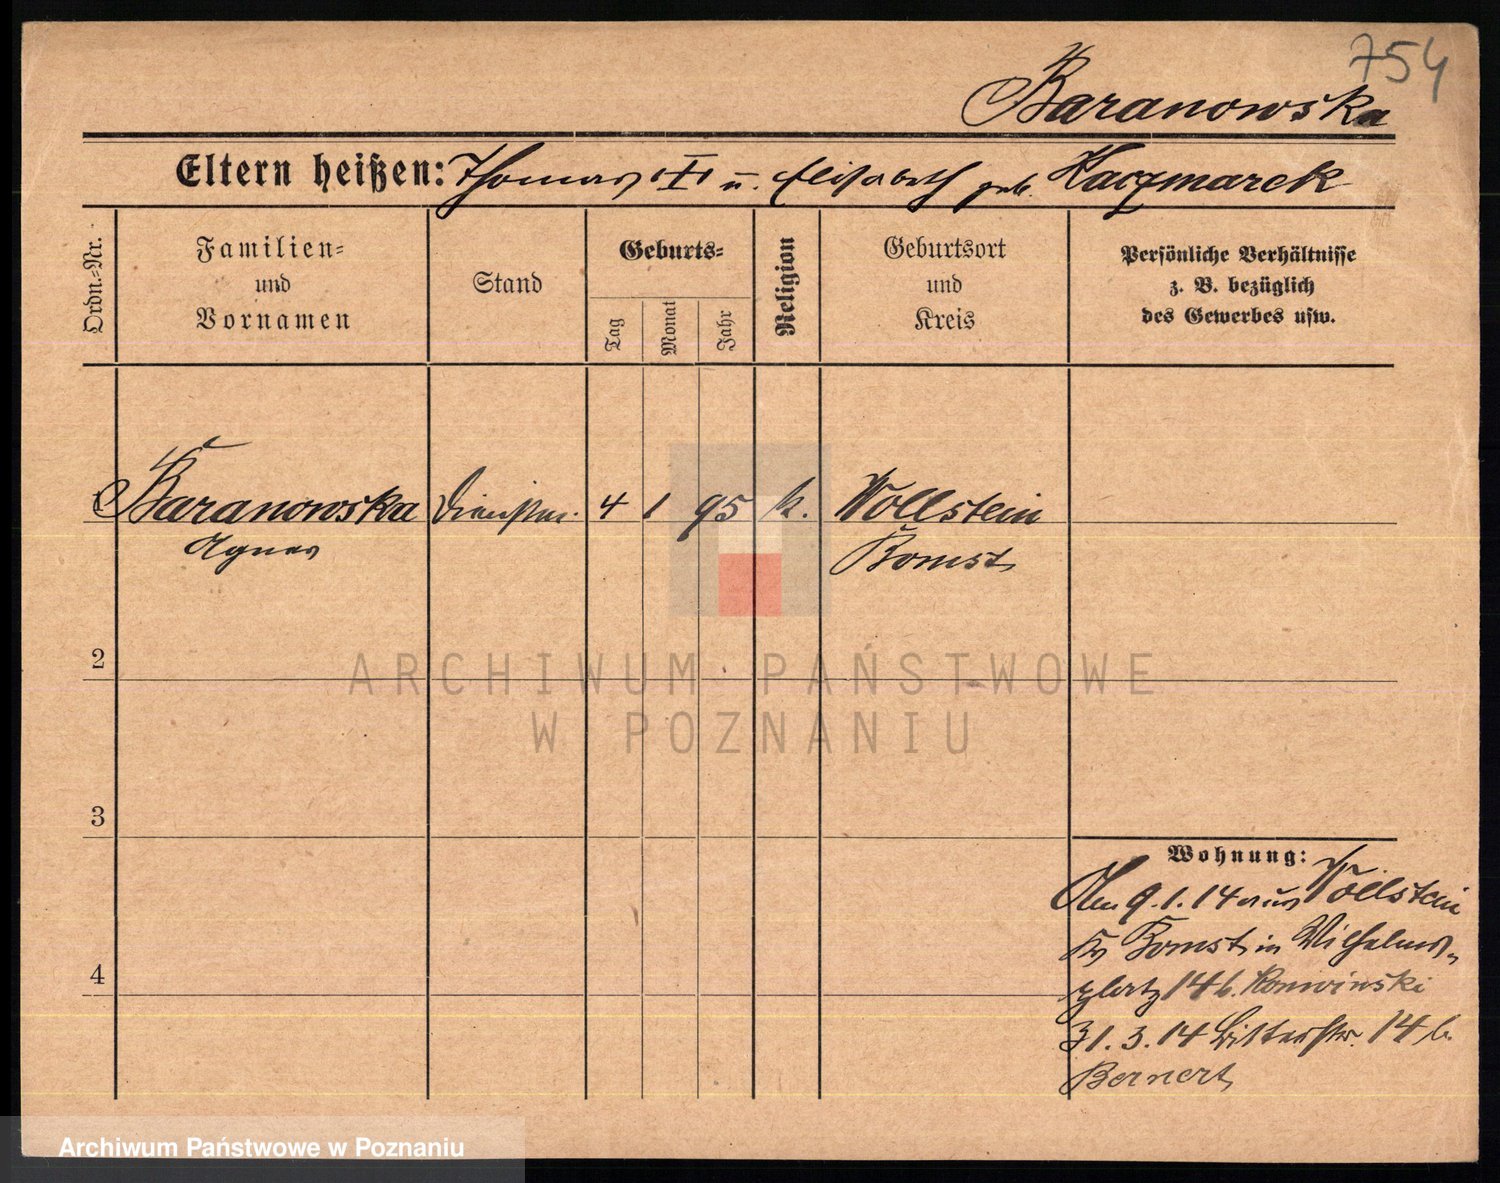 754
Baranowska
Eltern heißen: Thomas "†" u. Elisabeth geb. Kaczmarek
Ordn.-Nr.
Familien-
und
Vornamen
Stand
Geburts-
Tag
Monat
Jahr
Religion
Geburtsort
und
Kreis
Persönliche Verhältnisse
z. B. bezüglich
des Gewerbes usw.
1 Baranowska Dienstm. 4 1 95 k. Wollstein
Agnes Bomst
2
ARCHIWUM PAŃSTWOWE
W POZNANIU
3
Wohnung:
9.1.14 aus Wollstein
Kr Bomst in Wilhelms-
platz 14 b.
4
31.3.14 Ritterstr. 14 b.
Bernert
Archiwum Państwowe w Poznaniu